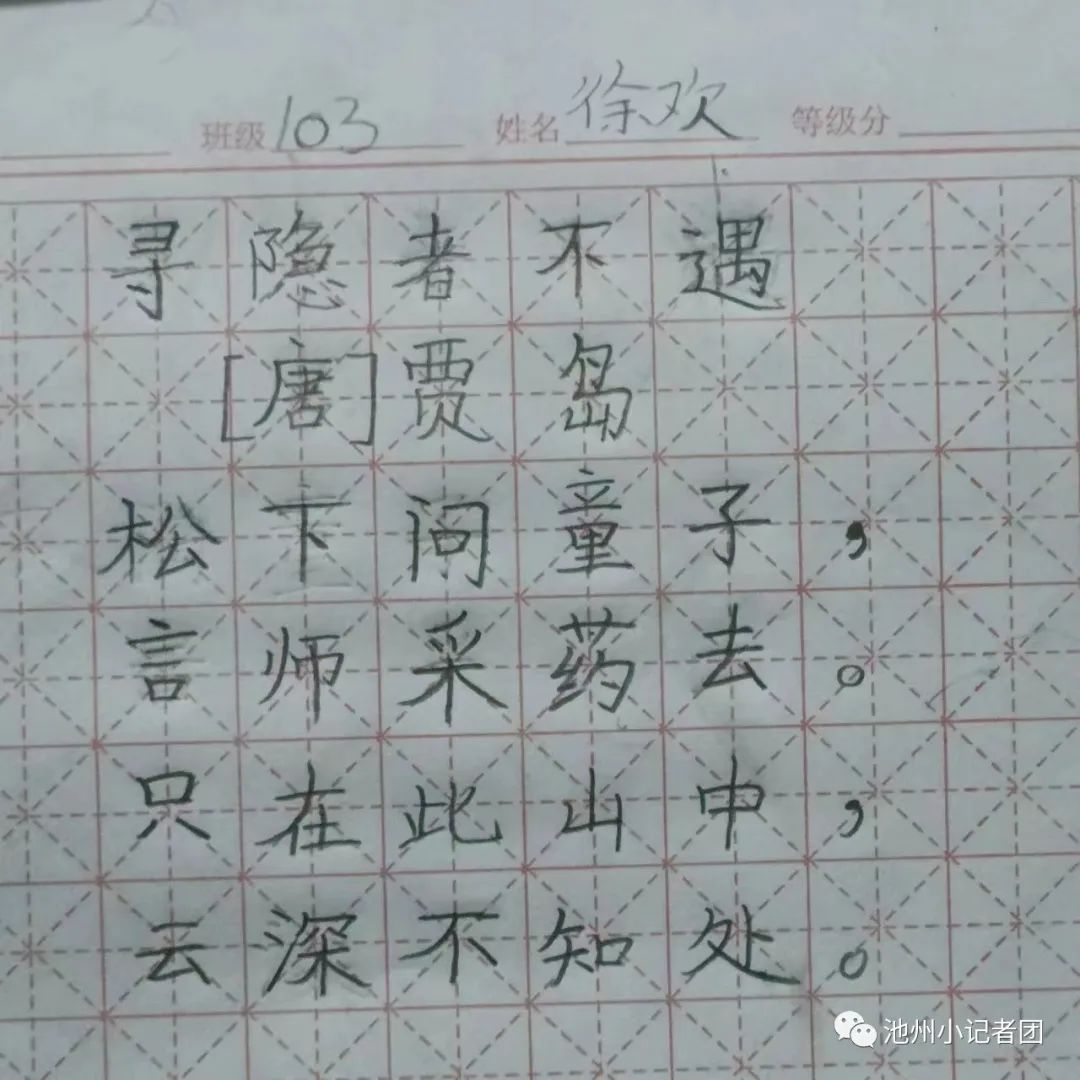 班级 103 姓名 徐欢 等级分
寻隐者不遇
[唐]贾岛
松下问童子，
言师采药去。
只在此山中，
云深不知处。
池州小记者团